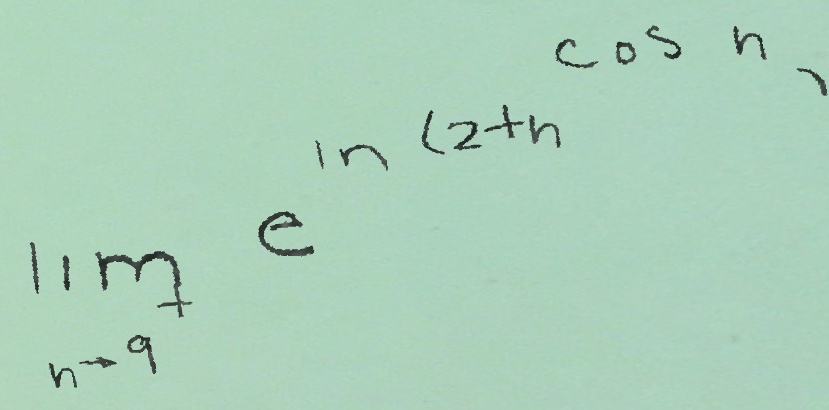 \lim_{n \to 9^+} e^{\ln (2+n^{\cos n})}